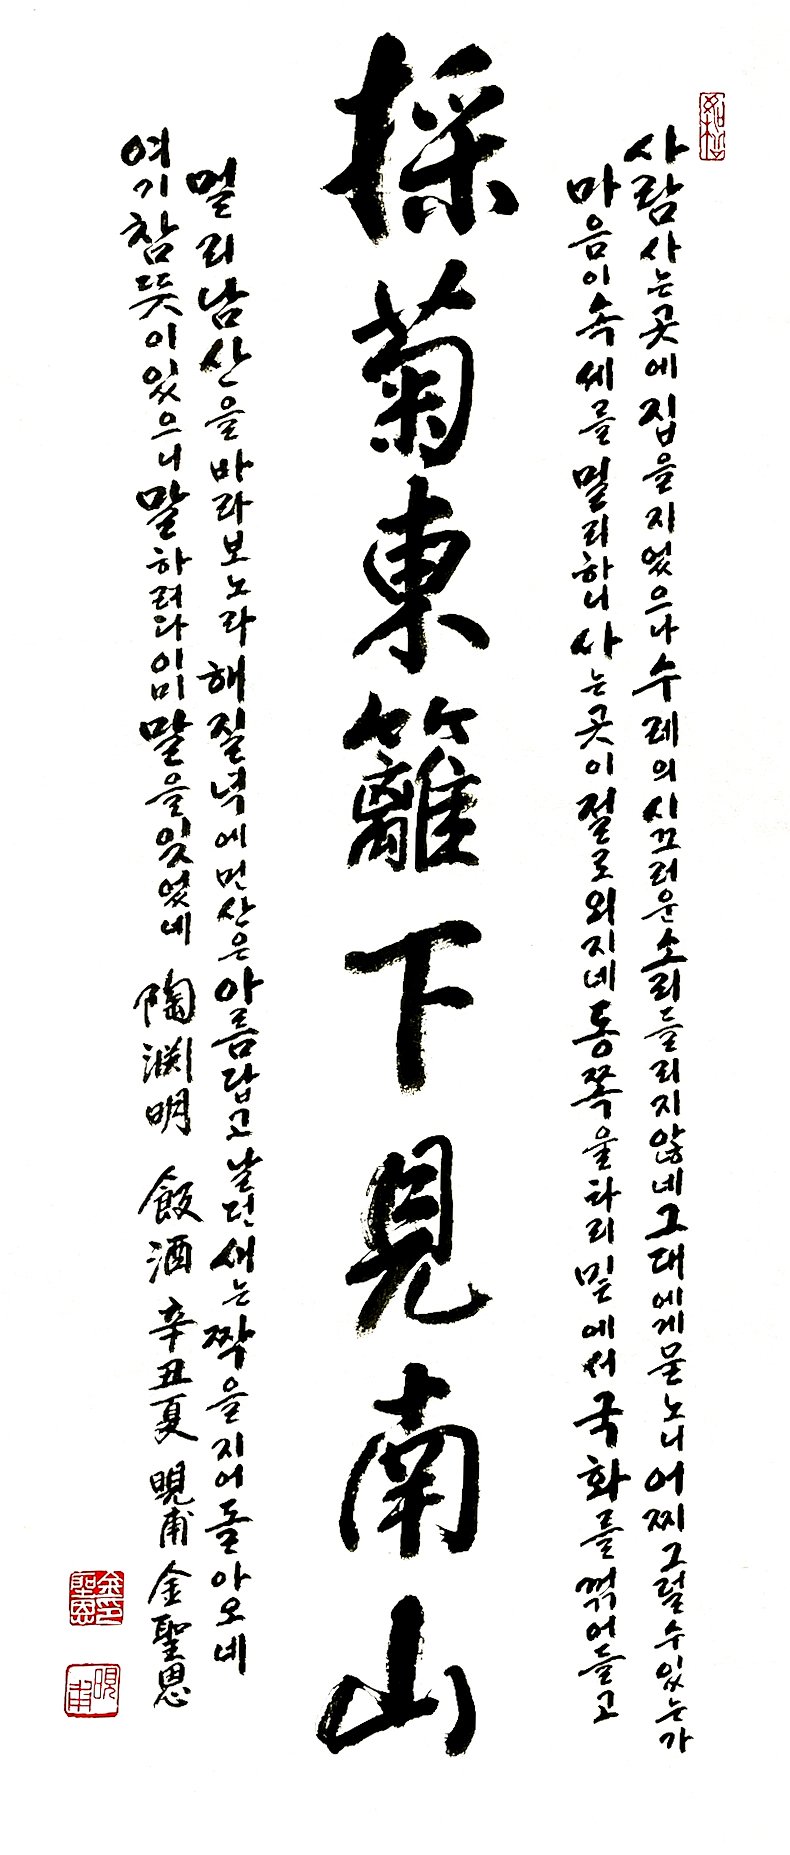 사람 사는 곳에 집을 지었으나 수레의 시끄러운 소리 들리지 않네 그대에게 물노니 어찌 그럴 수 있는가
마음이 속세를 멀리하니 사는 곳이 절로 외지네 동쪽 울타리 밑에서 국화를 꺾어들고
採菊東籬下見南山
멀리 남산을 바라보노라 해질녘에 먼 산은 아름답고 날던 새는 짝을 지어 돌아오네
여기 참뜻이 있으니 말하려다 이미 말을 잊었네 陶渊明 飲酒 辛丑夏 晛甫 金聖恩
金聖恩印
晛甫